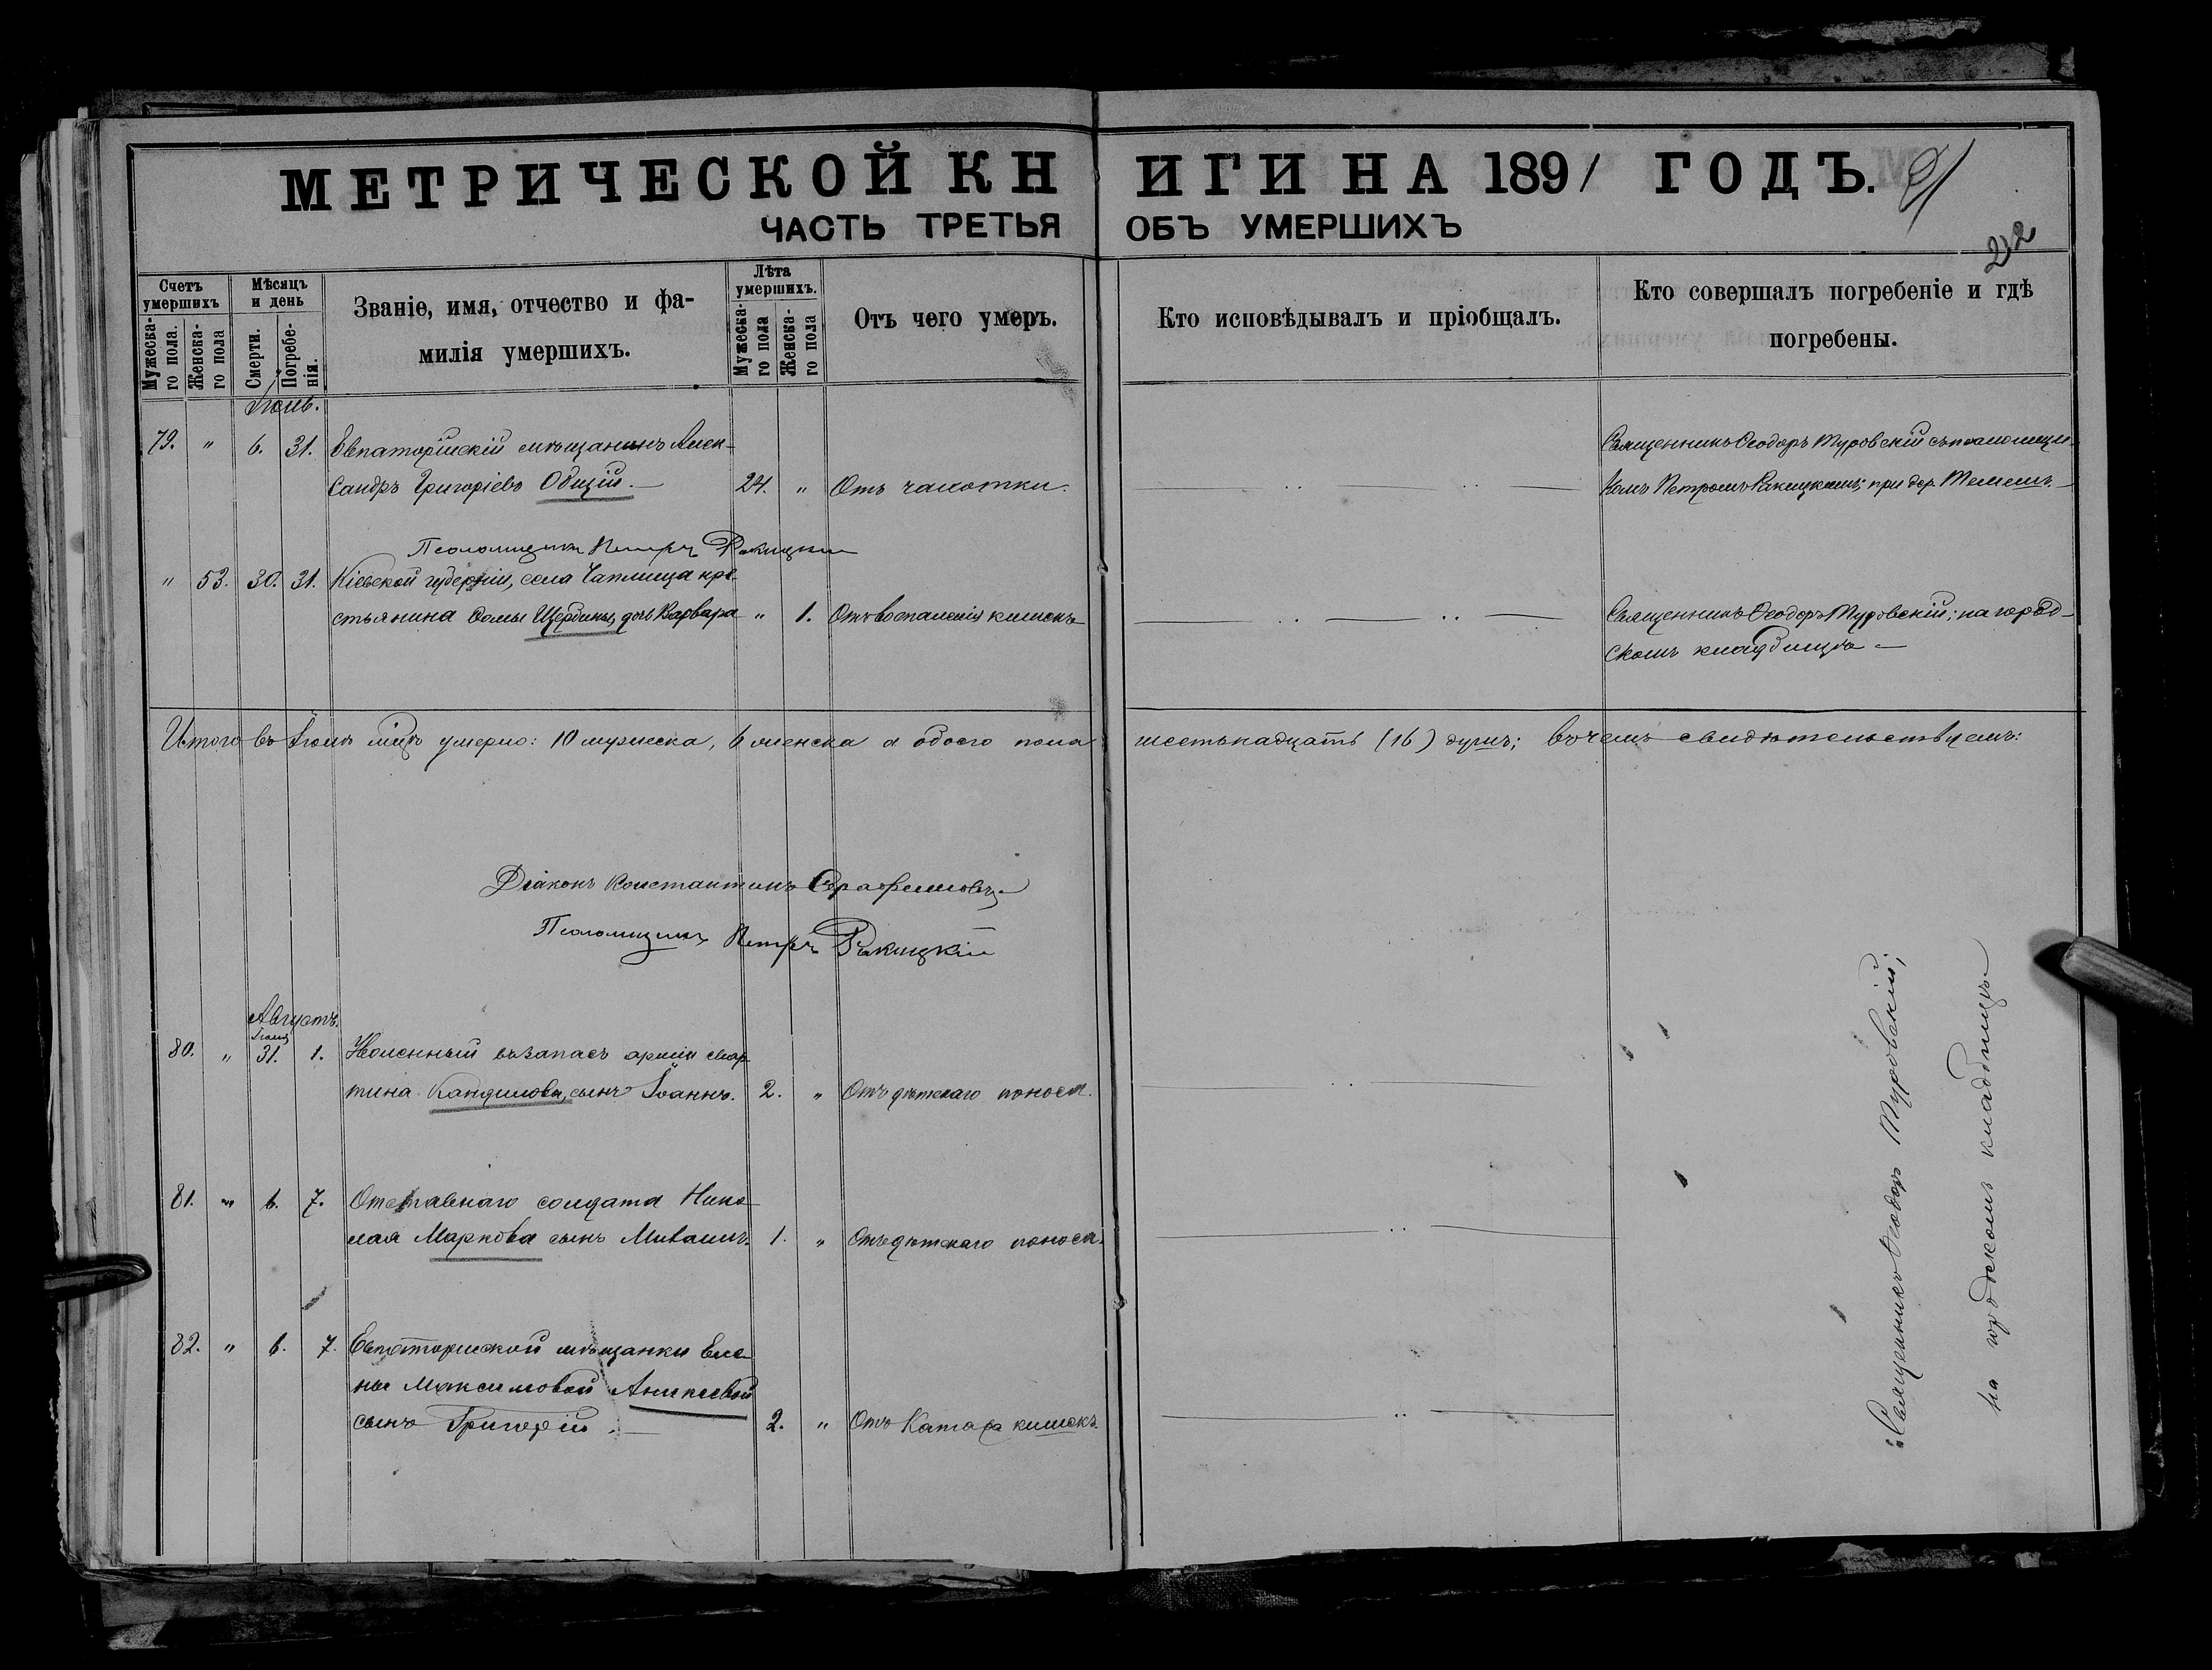 МЕТРИЧЕСКОЙ КНИГИ НА 1891 ГОДЪ.
ЧАСТЬ ТРЕТЬЯ ОБЪ УМЕРШИХЪ
22
Счетъ умершихъ
Мужеска-го пола.
Женска-го пола
Мѣсяцъ и день
Смерти.
Погребе-нія.
Званіе, имя, отчество и фа-
милія умершихъ.
Лѣта умершихъ.
Мужеска-го пола
Женска-го пола
Отъ чего умеръ.
Кто исповѣдывалъ и пріобщалъ.
Кто совершалъ погребеніе и гдѣ
погребены.
Іюль.
79. " 6. 31. Евпаторійскій мѣщанинъ Алек- Священникъ Ѳеодоръ Туровскій съ псаломщи-
сандръ Григоріевъ Общій. 24. " Отъ чахотки. комъ Петромъ Ракицкимъ; при дер. Темешъ.
Псаломщикъ Петръ Ракицкій
" 53. 30. 31. Кіевской губерніи, села Чаплища кре-
стьянина Ѳомы Щербины, дочь Варвара " 1. Отъ воспаленія кишекъ Священникъ Ѳеодоръ Туровскій; на город-
скомъ кладбищѣ
Итого въ Іюлѣ мѣсцѣ умерло: 10 мужеска, 6 женска а обоего пола шестьнадцать (16) душъ; въ чемъ свидѣтельствуемъ:
Діаконъ Константинъ Серафимовъ
Псаломщикъ Петръ Ракицкій
Августъ.
Іюля
80. " 31. 1. Уволенный въ запасъ арміи Мар-
тина Кандилова, сынъ Іоаннъ. 2. " Отъ дѣтскаго поноса.
81. " 6. 7. Отставнаго солдата Нико-
лая Маркова сынъ 1. " Отъ дѣтскаго поноса.
82. " 6. 7. Евпаторійской мѣщанки Еле-
ны Максимовой Аникіевой
сынъ Григорій. 2. " Отъ Катара кишекъ.
Священникъ Ѳеодоръ Туровскій;
на городскомъ кладбищѣ